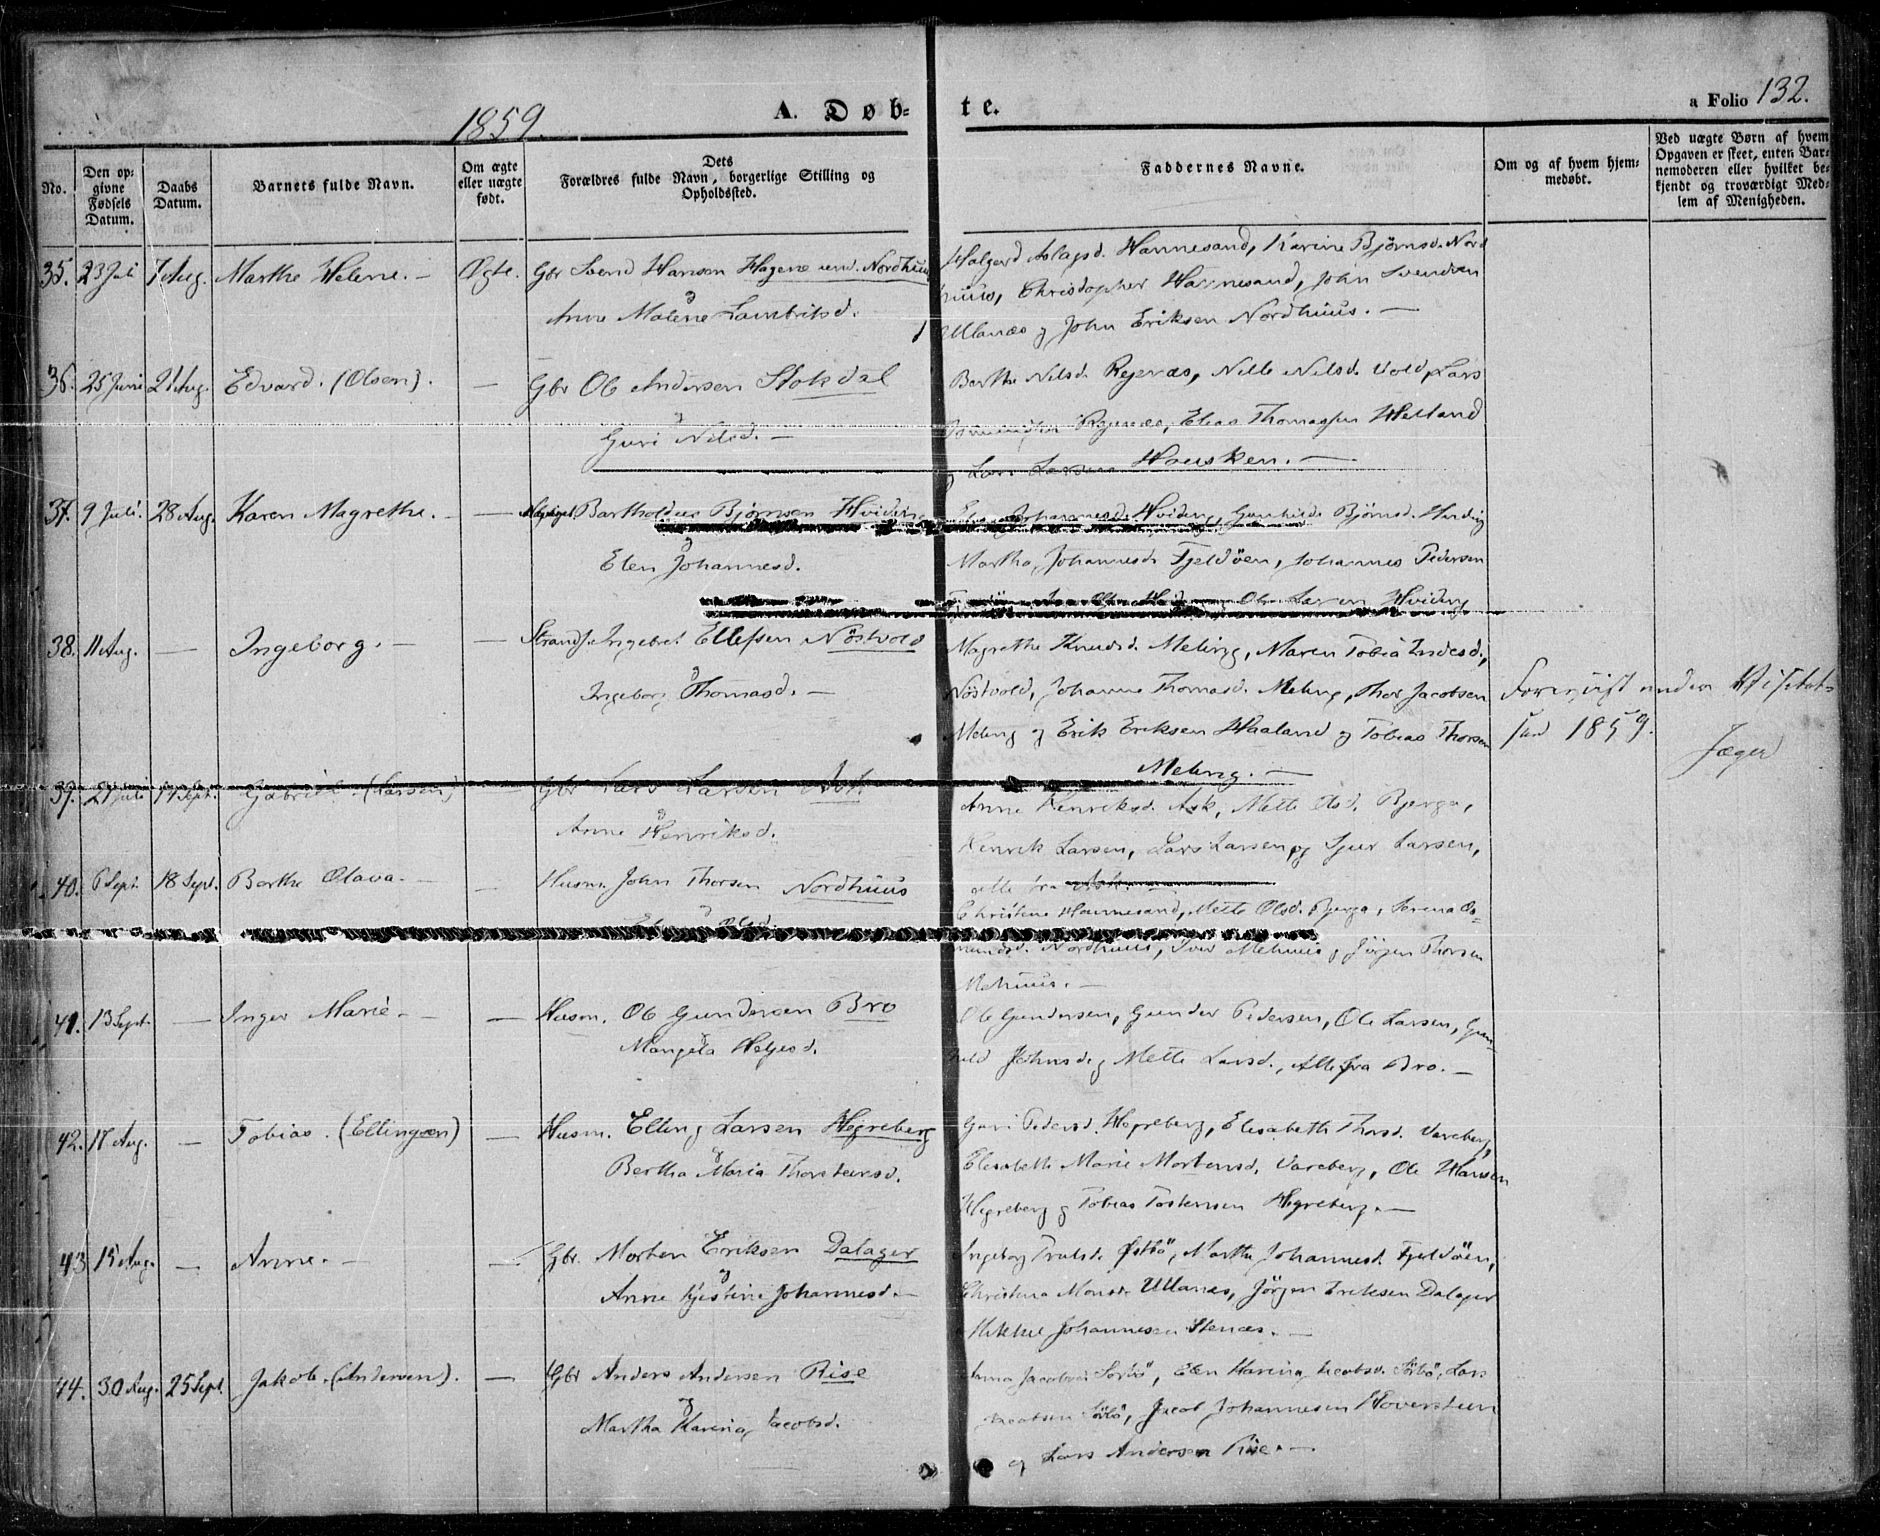 1859.
A. Døb-
te.
a Folio 132.
No.
Den op-
givne
Fødsels
Datum.
Daabs
Datum.
Barnets fulde Navn.
Om ægte
eller uægte
født.
Dets
Forældres fulde Navn, borgerlige Stilling og
Opholdssted.
Faddernes Navne.
Om og af hvem hjem-
medøbt.
Ved uægte Børn af hvem
Opgaven er skeet, enten Bar-
nemoderen eller hvilket be-
kjendt og troværdigt Med-
lem af Menigheden.
35. 23 Juli 7 Aug. Marthe Helene. — Ægte. Gbr Svend Hansen Hagene und. Nordhuus
og
Anne Malene Lambriksd.
Halgerd Aslagsd. Hannesand, Karine Bjørnsd. Nord
huus, Christopher Hannesand, John Svendsen
Ullanæs og John Eriksen Nordhuus. —
36. 25 Juni 21 Aug. Edvard. (Olsen). — Gbr Ole Andersen Stokdal
og
Guri Nilsd. —
Berthe Nilsd. Rejenæs, Nille Nilsd. Vold, Lars
Rejenæs, Elias Thomassen Helland
og Lars Larsen Hausken. —
37. 9 Juli. 28 Aug. Karen Magrethe. — Bartholdus Bjørnsen Hviding
og
Elen Johannesd.
Johannesd. Hviding, Gunhilde Bjørnsd. Hviding
Martha Johannesd. Fjeldøen, Johannes Pedersen
Ole Larsen Hviding
38. 11 Aug. — Ingeborg. — — Strands. Ingebret Ellefsen Nöstvold
og
Ingeborg Thomasd. —
Magrethe Knudsd. Meling, Maren Tobia Endesd.,
Nöstvold, Johanne Thomasd. Meling, Thor Jacobsen
Meling og Erik Eriksen Haaland og Tobias Thorsen
Meling. —
Forevist under Visitat-
sen 1859.
Jæger
39. 21 Juli 14 Sept. Gabriel. (Larsen) — Gbr Lars Larsen Ask
og
Anne Henriksd.
Anne Henriksd. Ask, Mette Olsd. Bjerga,
Henrik Larsen, Lars Larsen og Sjur Larsen,
alle fra Ask. —
40. 6 Sept. 18 Sept. Berthe Olava. — — Husm. John Thorsen Nordhuus
og
Olsd.
Christine Hannesand, Mette Olsd. Bjerga, Serena Os-
mundsd. Nordhuus, Iver Mehuus og Jörgen Thorsen
Mehuus. —
41. 13 Sept. — Inger Marie. — — Husm. Ole Gundersen Bro
og
Mangela Helgesd.
Ole Gundersen, Gunder Pedersen, Ole Larsen, Gun-
hild Johnsd. og Mette Larsd., Alle fra Bro. —
42. 17 Aug. — Tobias. (Ellingsen) — Husm. Elling Larsen Hegreberg
og
Bertha Maria Thorsteinsd.
Guri Pedersd. Hegreberg, Elisabeth Thorsd. Vareberg,
Elisabeth Marie Mortensd. Vareberg, Ole Hansen
Hegreberg og Tobias Tostensen Hegreberg. —
43 15 Aug. — Anne. — — Gbr. Morten Eriksen Dalager
og
Anne Kjestine Johannesd. —
Ingeborg Trulsd. Østbö, Martha Johannesd. Fjeldöen,
Christina Monsd. Ullanæs, Jörgen Eriksen Dalager
Mikkel Johannesen Stenæs. —
44. 30 Aug. 25 Sept. Jakob. (Andersen). — Gbr Anders Andersen Rise
og
Martha Karina Jacobsd.
Anna Jacobsd. Sörbö, Elen Karina Jacobsd. Sörbö, Lars
Jacobsen Sörbö, Jacob Johannesen Hoversteen
og Lars Andersen Rise. —